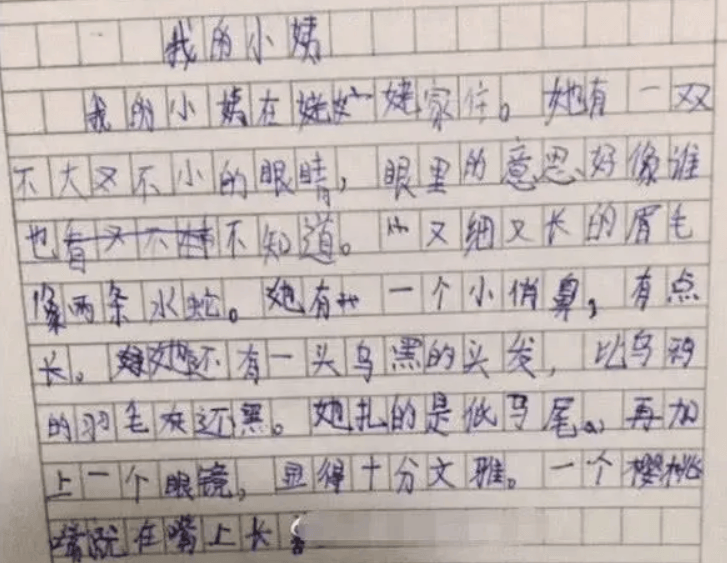 我的小姨
我的小姨在姥姥家住。她有一双
不大又不小的眼睛，眼里的意思好像谁
也看又不不知道。又细又长的眉毛
像两条水蛇。她有一个小俏鼻，有点
长。她还有一头乌黑的头发，比乌鸦
的羽毛灰还黑。她扎的是低马尾。再加
上一个眼镜，显得十分文雅。一个樱桃
嘴就在嘴上长